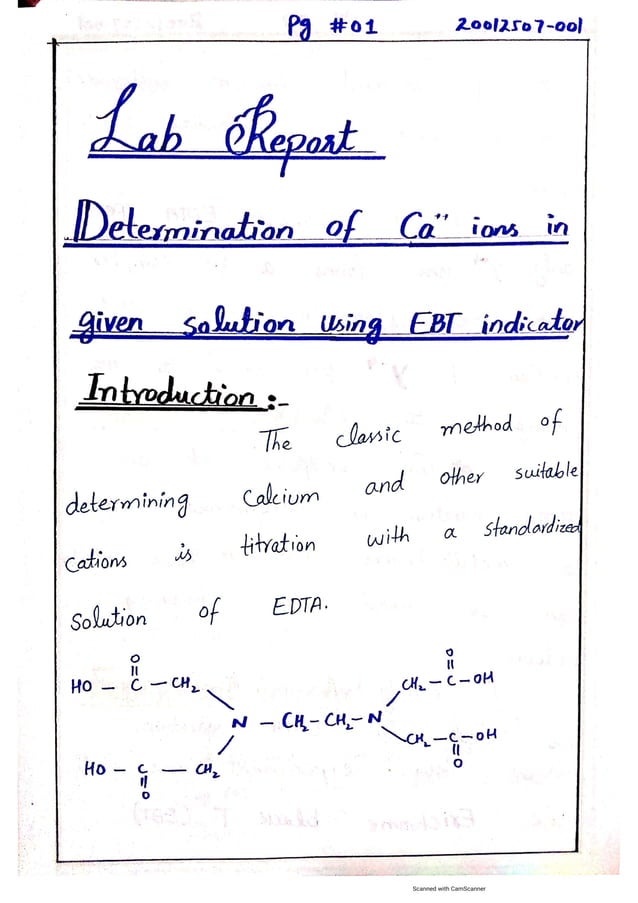 Pg #01 20012507-001
Lab Report
Determination of Ca¨ ions in
given solution using EBT indicator
Introduction :-
The classic method of
determining Calcium and other suitable
Cations is titration with a standardized
Solution of EDTA.
O O
|| ||
HO – C – CH₂ CH₂ – C – OH
N – CH₂ – CH₂ – N
HO – C – CH₂ CH₂ – C – OH
|| ||
O O
Scanned with CamScanner